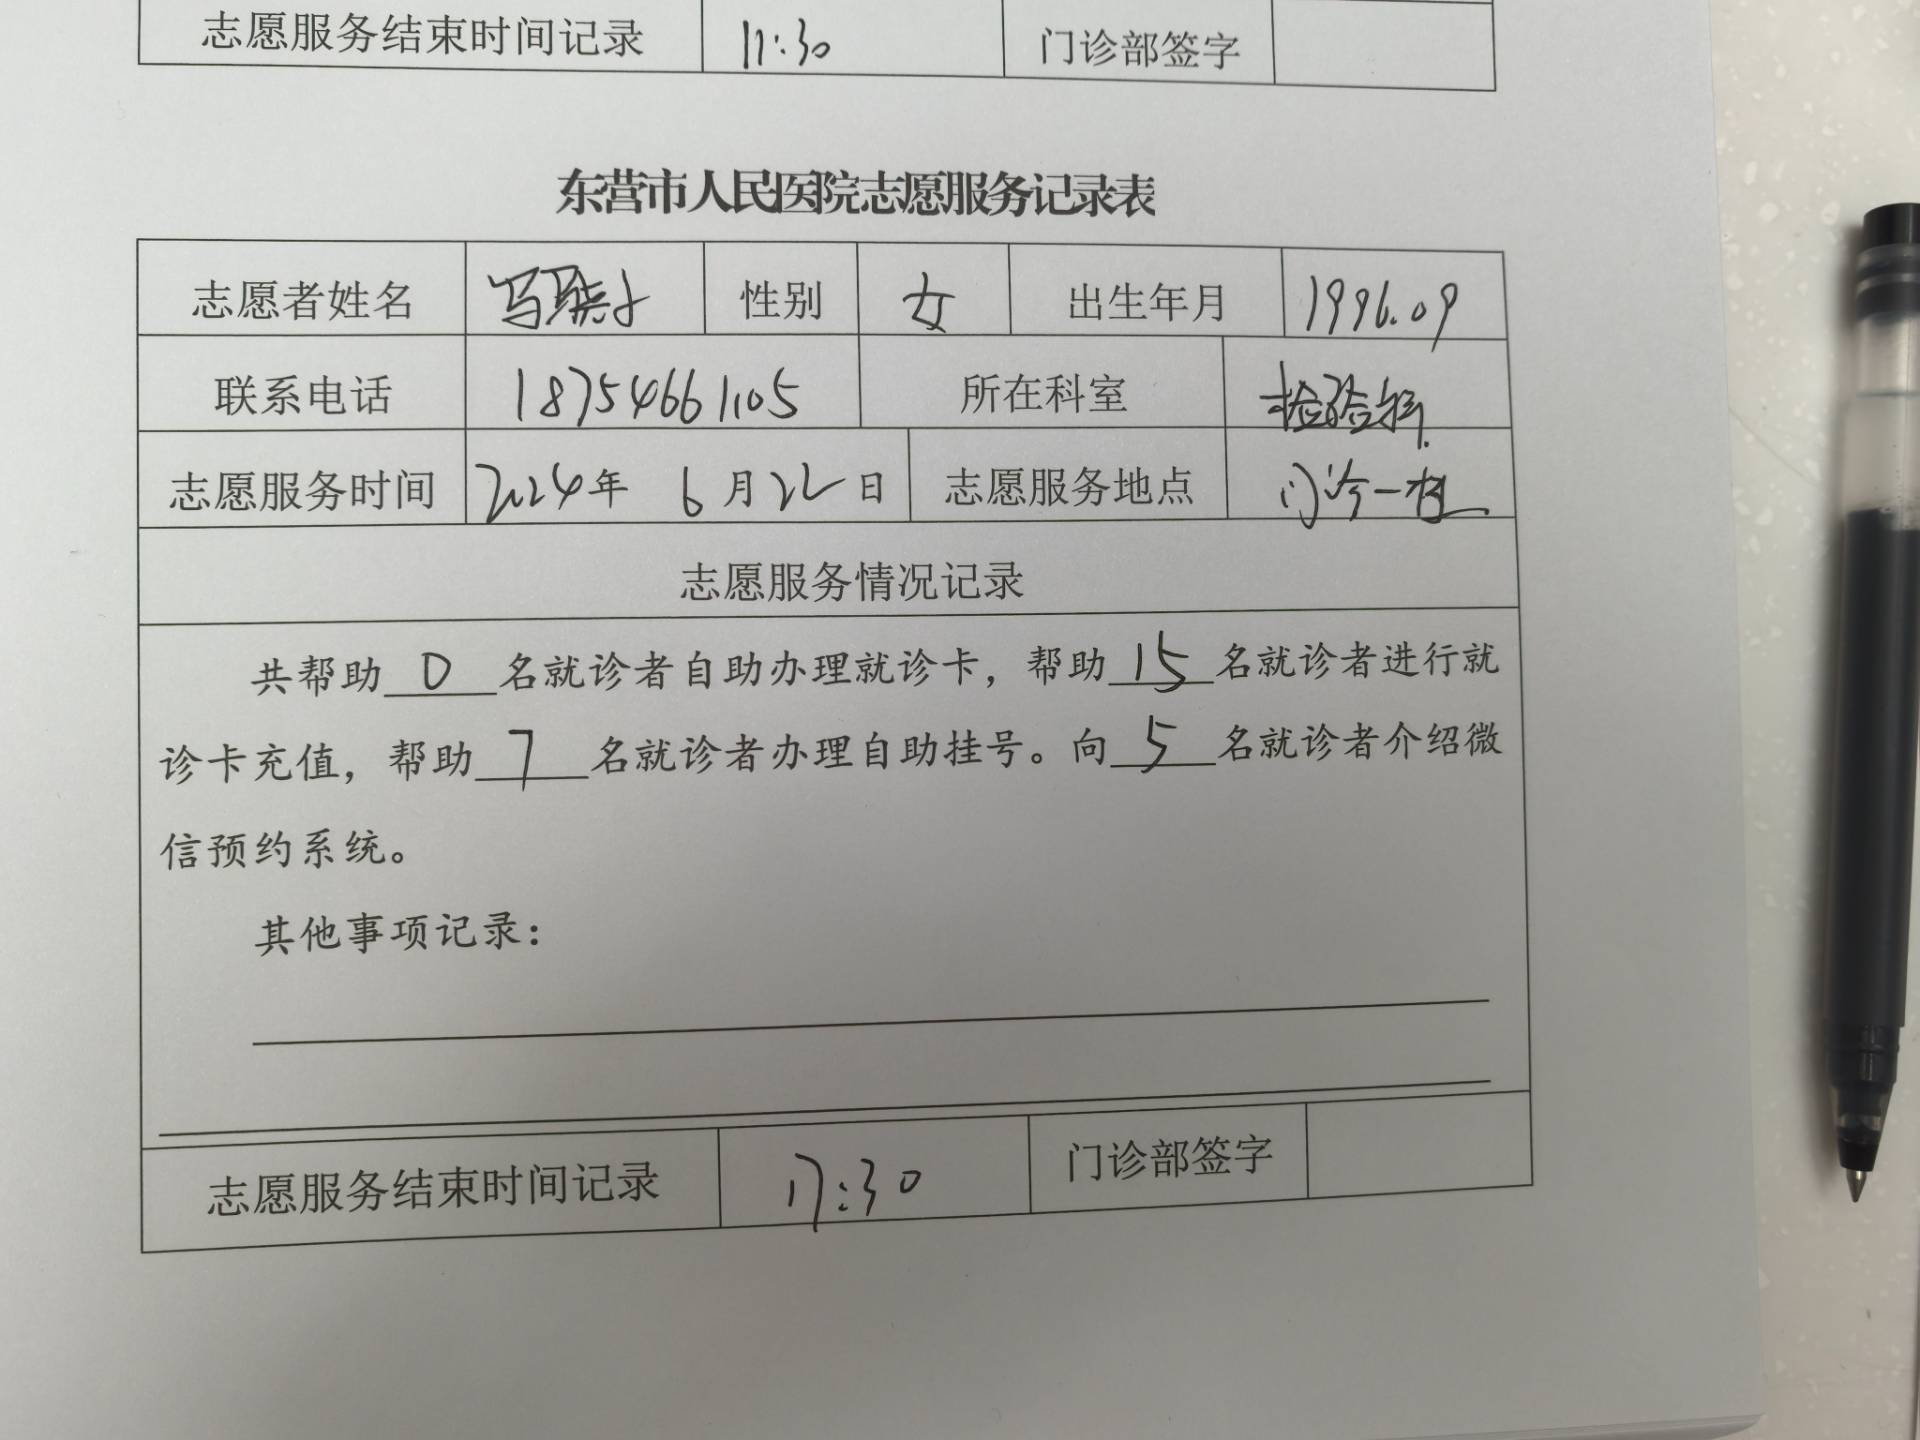 志愿服务结束时间记录 11:30 门诊部签字
东营市人民医院志愿服务记录表
志愿者姓名 性别 女 出生年月 1996.09
联系电话 18754661105 所在科室 检验科
志愿服务时间 2024年 6月22日 志愿服务地点 门诊一楼
志愿服务情况记录
共帮助 0 名就诊者自助办理就诊卡，帮助 15 名就诊者进行就
诊卡充值，帮助 7 名就诊者办理自助挂号。向 5 名就诊者介绍微
信预约系统。
其他事项记录：
志愿服务结束时间记录 17:30 门诊部签字